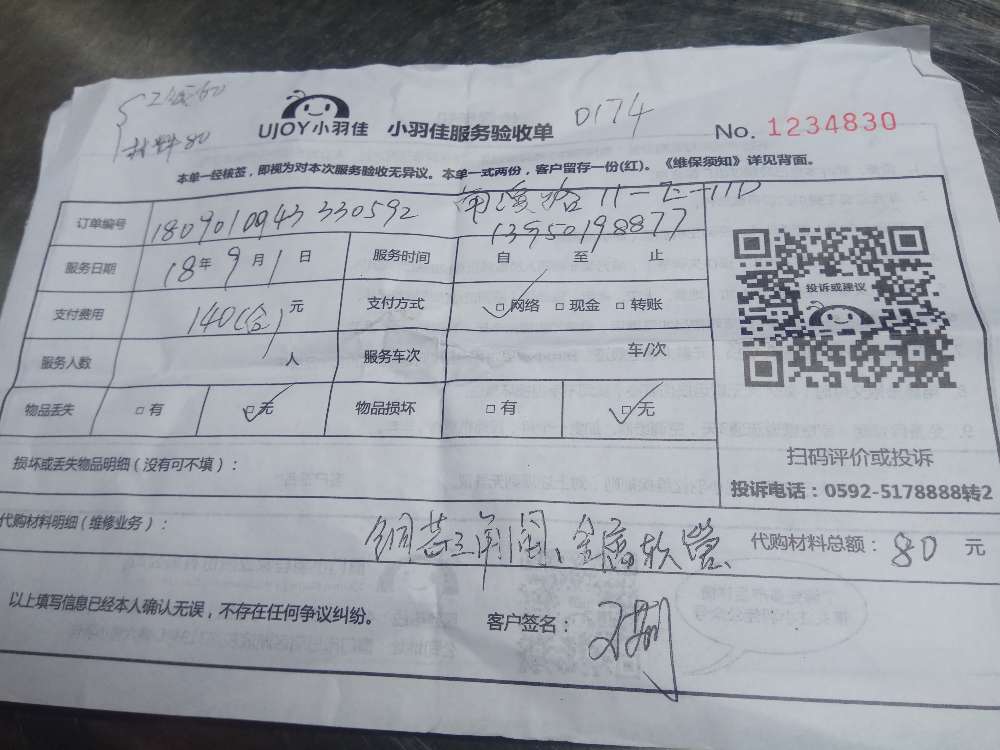 工钱60
材料80
UJOY小羽佳 小羽佳服务验收单 0174 No. 1234830
本单一经核签，即视为对本次服务验收无异议。本单一式两份，客户留存一份(红)。《维保须知》详见背面。
订单编号 1809010943330592
13950198877
服务日期 18年9月1日 服务时间 自 至 止
支付费用 140(含)元 支付方式 □网络 □现金 □转账
服务人数 人 服务车次 车/次
物品丢失 □有 □无 物品损坏 □有 □无
投诉或建议
扫码评价或投诉
投诉电话：0592-5178888转2
损坏或丢失物品明细（没有可不填）：
代购材料明细（维修业务）： 铜芯三角阀、金属软管 代购材料总额： 80 元
以上填写信息已经本人确认无误，不存在任何争议纠纷。 客户签名：